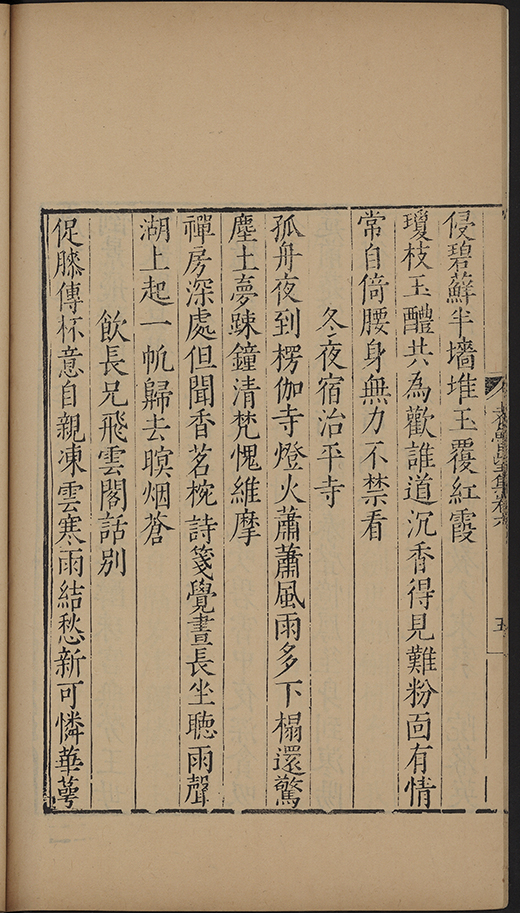 侵碧蘚半墻堆玉覆紅霞
瓊枝玉醴共為歡誰道沉香得見難粉面有情
常自倚腰身無力不禁看
冬夜宿治平寺
孤舟夜到楞伽寺燈火蕭蕭風雨多下榻還驚
塵土夢踈鐘清梵愧維摩
禪房深處但聞香茗椀詩箋覺晝長坐聽雨聲
湖上起一帆歸去暝烟蒼
飲長兄飛雲閣話別
促膝傳杯意自親凍雲寒雨結愁新可憐華萼